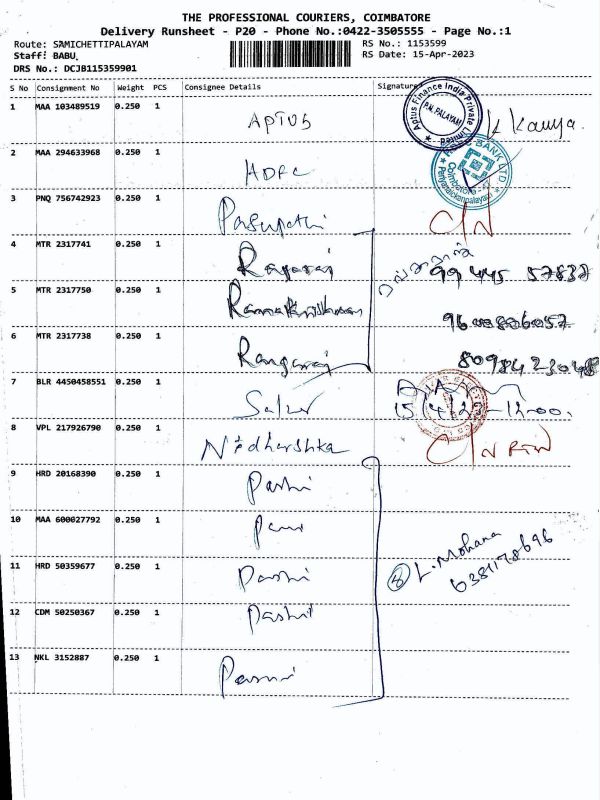 THE PROFESSIONAL COURIERS, COIMBATORE
Delivery Runsheet - P20 - Phone No.:0422-3505555 - Page No.:1
Route: SAMICHETTIPALAYAM RS No.: 1153599
Staff: BABU RS Date: 15-Apr-2023
DRS No.: DCJB115359901
S No Consignment No Weight PCS Consignee Details Signature
1 MAA 103489519 0.250 1 APTUS
Aptus Finance India Private Limited
P.N. PALAYAM
K Kavya.
2 MAA 294633968 0.250 1 HDFC
HDFC BANK LTD.
Coimbatore
Periyanaickenpalayam
3 PNQ 756742923 0.250 1 Pasupathi C/N
4 MTR 2317741 0.250 1 Rangaraj
ரங்கராஜ்
99445 57837
5 MTR 2317750 0.250 1 Ramakrishnan 9600806057
6 MTR 2317738 0.250 1 Rangaraj 8098423048
7 BLR 4450458551 0.250 1
15/4/2 - 12-00.
8 VPL 217926790 0.250 1 Nidharshka C/N
9 HRD 20168390 0.250 1 Pashi
10 MAA 600027792 0.250 1
11 HRD 50359677 0.250 1 Pashi
L. Mohana
6381178696
12 CDM 50250367 0.250 1
13 NKL 3152887 0.250 1